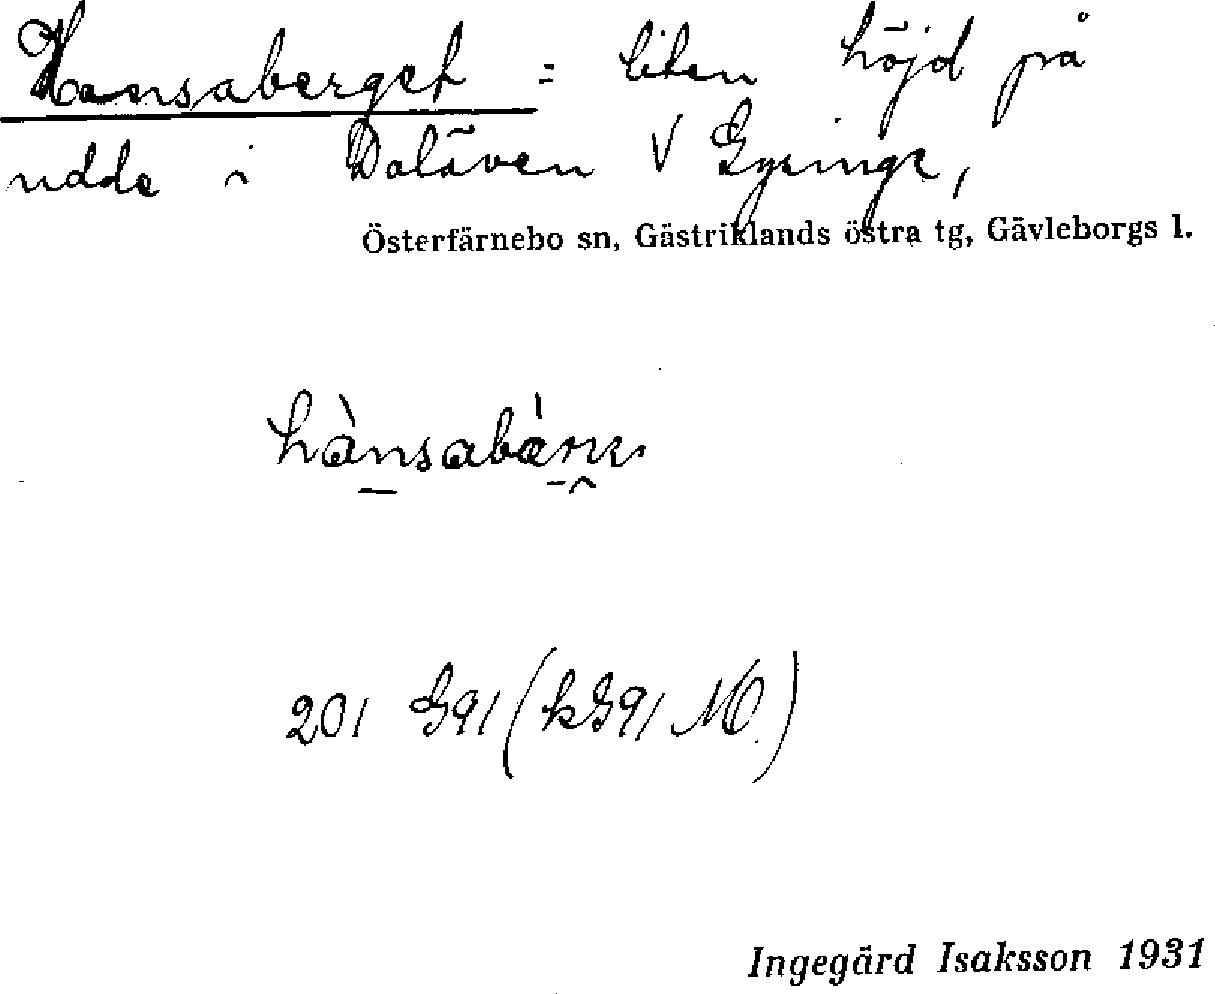 Hansaberget = liten höjd på
udde i Dalälven V Gysinge,
Österfärnebo sn, Gästriklands östra tg, Gävleborgs l.
201 G91 (kG91 M)
Ingegärd Isaksson 1931